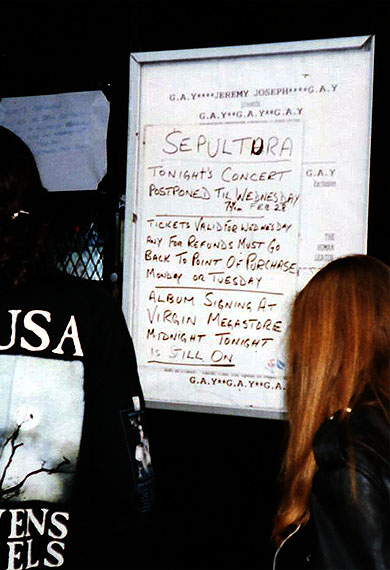 G.A.Y****JEREMY JOSEPH****G.A.Y
G.A.Y**G.A.Y**G.A.Y
SEPULTURA
TONIGHT'S CONCERT
POSTPONED TIL WEDNESDAY
FEB 28
G.A.Y
Exclusive
TICKETS VALID FOR WEDNESDAY
ANY FOR REFUNDS MUST GO
BACK TO POINT OF PURCHASE
MONDAY OR TUESDAY
THE
HUMAN
LEAGUE
ALBUM SIGNING AT
VIRGIN MEGASTORE
MIDNIGHT TONIGHT
IS STILL ON
G.A.Y**G.A.Y**G.A.
USA
VENS
ELS